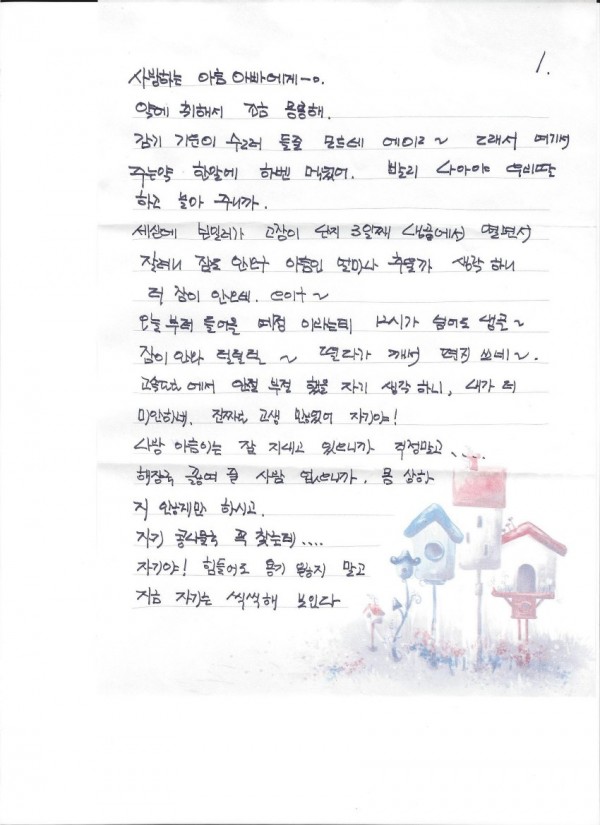 1.
사랑하는 아름 아빠에게~o.
약에 취해서 조금 몽롱해.
감기 기운이 수그러 들줄 모르네 에이그~ 그래서 여기서
주는약 한알에 하벤 먹었어. 빨리 나아야 우리딸
하고 놀아 주니까.
세상에 보일러가 고장이 난지 3일째 냉골에서 떨면서
잘려니 잠도 안오구 아름인 얼마나 추울까 생각 하니
더 잠이 안오네. 에이구~
오늘 부러 들어올 예정 이라는데 12시가 넘어도 냉골~
잠이 안와 덜덜덜 ~ 떨다가 깨서 편지 쓰네~.
고속버스 에서 안절 부절 했을 자기 생각 하니, 내가 더
미안하네. 진짜로 고생 많았어 자기야!
사랑 아름이는 잘 지내고 있으니까 걱정말고....
해장국 끓여 줄 사람 없으니까. 몸 상하
지 않게만 하시고.
자기 콩나물국 꼭 찾는데....
자기야! 힘들어도 용기 잃지 말고
지금 자기는 씩씩해 보인다